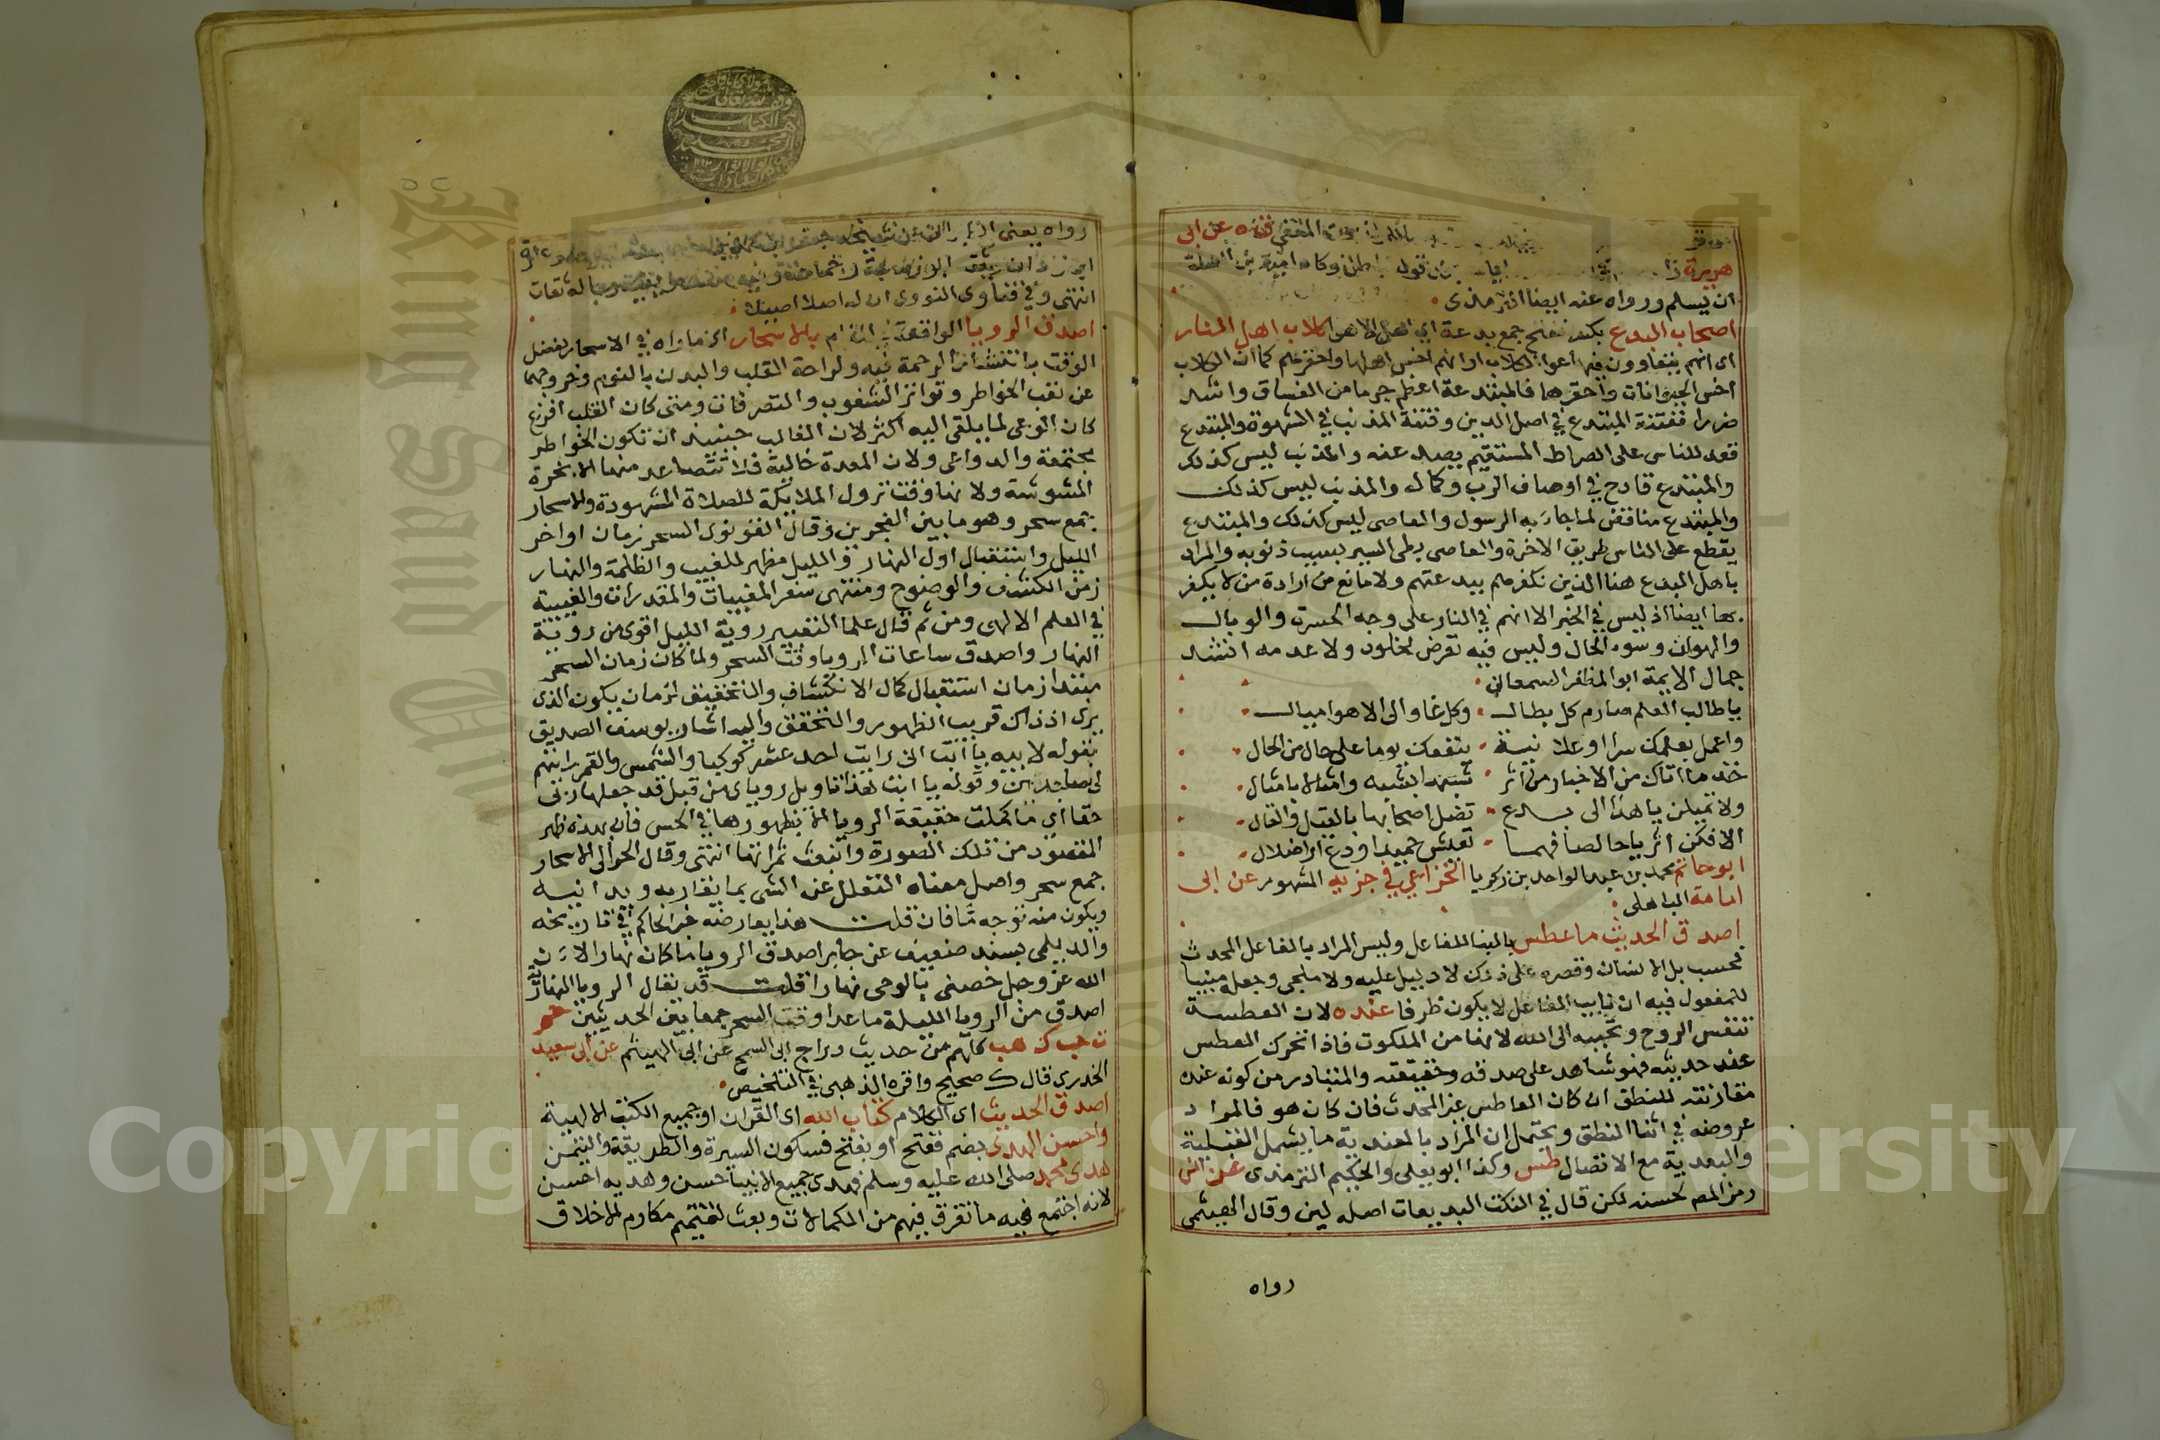 هريرة
ان يسلم ورواه عنه ايضا الترمذى
اصحاب البدع بكسر ففتح جمع بدعة اى اهل الاهوا كلاب اهل النار
اى انهم يتعاوون فيها عوا الكلاب او انهم اخس اهلها واحقرهم كما ان الكلاب
اخس الحيوانات واحقرها فالمبتدعة اعظم جرما من الفساق واشد
ضررا ففتنة المبتدع في اصل الدين وفتنة المذنب في الشهوة والمبتدع
قعد للناس على الصراط المستقيم يصد عنه والمذنب ليس كذلك
والمبتدع قادح في اوصاف الرب وكماله والمذنب ليس كذلك
والمبتدع مناقض لما جا به الرسول والعاصى ليس كذلك والمبتدع
يقطع على الناس طريق الاخرة والعاصى بطى السير بسبب ذنوبه والمراد
باهل البدع هنا الذين نكفرهم ببدعتهم ولا مانع من ارادة من لا يكفر
بها ايضا اذ ليس في الخبر الا انهم في النار على وجه الحسرة والوبال
والهوان وسوء الحال وليس فيه تعرض لخلود ولا عدمه انشد
جمال الايمة ابو المظفر السمعانى
يا طالب العلم صارم كل بطال وكل غاو الى الاهوا ميال
واعمل بعلمك سرا او علانية ينفعك يوما على حال من الحال
خذ ما اتاك من الاخبار من اثر شبها بشبه وامثالا بامثال
ولا تميلن يا هذا الى بدع تضل اصحابها بالقيل والقال
الا فكن اثريا خالصا فهما تعش حميدا ودع اراضلال
ابو حاتم محمد بن عبد الواحد بن زكريا الخزاعي في جزيه المشهور عن ابى
امامة الباهلى
اصدق الحديث ما عطس بالبنا للفاعل وليس المراد بالفاعل المحدث
فحسب بل الانسان وقصره على ذلك لا دليل عليه ولا ملجى وجعله مبنيا
للمفعول فيه ان نايب الفاعل لا يكون ظرفا عنده لان العطسة
تنفس الروح وتحببه الى الله لانها من الملكوت فاذا تحرك العطس
عند حديثه فهو شاهد على صدقه وحقيقته والمتبادر من كونه عنده
مقارنته للنطق ان كان العاطس غير المحدث فان كان هو فالمراد
عروضه في اثنا النطق ويحتمل ان المراد بالعندية ما يشمل القبلية
والبعدية مع الاتصال طس وكذا ابو يعلى والحكيم الترمذى عن انس
رمز المص لحسنه لكن قال في النكت البديعات اصله لين وقال الهيثمى
رواه
رواه يعنى
انتهى وفي فتاوى النووى ان له اصلا اصيلا
اصدق الرويا الواقعة في المنام بالاسحار اى ما راه في الاسحار لفضل
الوقت بانتشار الرحمة فيه ولراحة القلب والبدن بالنوم وخروجهما
عن تعب الخواطر وتواتر الشغوب والتصرفات ومتى كان القلب افرغ
كان الوعى لما يلقى اليه اكثر لان الغالب حينيذ ان تكون الخواطر
مجتمعة والدواعى ولان المعدة خالية فلا تتصاعد منها الابخرة
المشوشة ولانها وقت نزول الملايكة للصلاة المشهودة والاسحار
جمع سحر وهو ما بين الفجرين وقال القونوى السحر زمان اواخر
الليل واستقبال اول النهار والليل مظهر للغيب والظلمة والنهار
زمن الكشف والوضوح ومنتهى سفر المغيبات والمقدرات والغيبية
في العلم الالهى ومن ثم قال علما التعبير روية الليل اقوى من روية
النهار واصدق ساعات الرويا وقت السحر ولما كان زمان السحر
مبتدا زمان استقبال كمال الانكشاف والتحقيق لزمان يكون الذى
يرى اذ ذاك قريب الظهور والتحقق واليه اشار يوسف الصديق
بقوله لابيه يا ابت انى رايت احد عشر كوكبا والشمس والقمر رايتهم
لى ساجدين وقوله يا ابت هذا تاويل روياى من قبل قد جعلها ربى
حقا اى ما كملت حقيقة الرويا الا بظهورها في الحس فان بهذه ظهر
المقصود من تلك الصورة واينعت ثمراتها انتهى وقال الحرالى الاسحار
جمع سحر واصل معناه التعلل عن الشى بما يقاربه ويدانيه
ويكون منه توجه ما فان قلت هذا يعارضه خبر الحاكم في تاريخه
والديلمى بسند ضعيف عن جابر اصدق الرويا ما كان نهارا لان
الله عز وجل خصنى بالوحى نهارا قلت قد يقال الرويا النهارية
اصدق من الرويا الليلة ما عدا وقت السحر جمعا بين الحديثين حم
ت حب ك هب كلهم من حديث دراج ابى السمح عن ابى الهيثم عن ابى سعيد
الخدرى قال ك صحيح واقره الذهبى في التلخيص
اصدق الحديث اى الكلام كتاب الله اى القران او جميع الكتب الالهية
واحسن الهدى بضم ففتح او بفتح فسكون السيرة والطريقة والسمت
هدى محمد صلى الله عليه وسلم فهدى جميع الانبيا حسن وهديه احسن
لانه اجتمع فيه ما تفرق فيهم من الكمالات وبعث لتتميم مكارم الاخلاق
Copyright
King Saud University